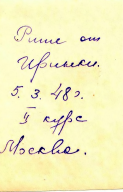 Рите от
Иришки.
5.3.48г.
II курс
Москва.